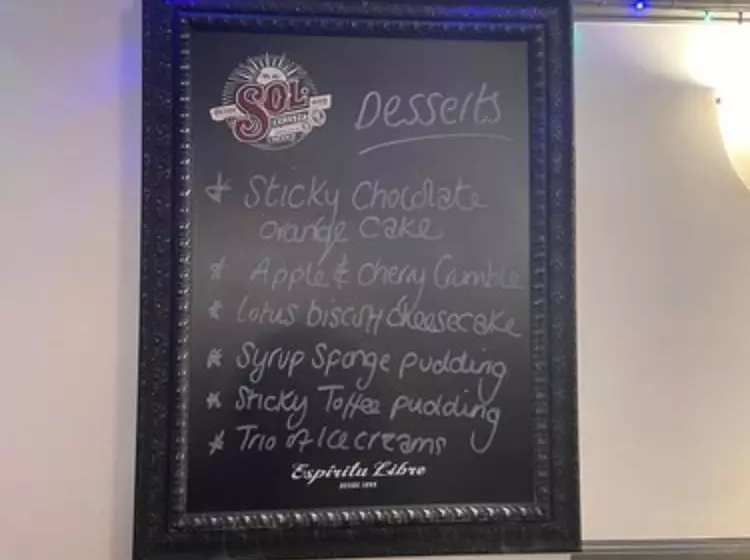 SOL
CERVEZA
Desserts
* Sticky Chocolate
orange cake
* Apple & cherry Crumble
* Lotus biscuit cheesecake
* Syrup Sponge pudding
* Sticky Toffee pudding
* Trio of Ice creams
Espíritu Libre
DESDE 1899